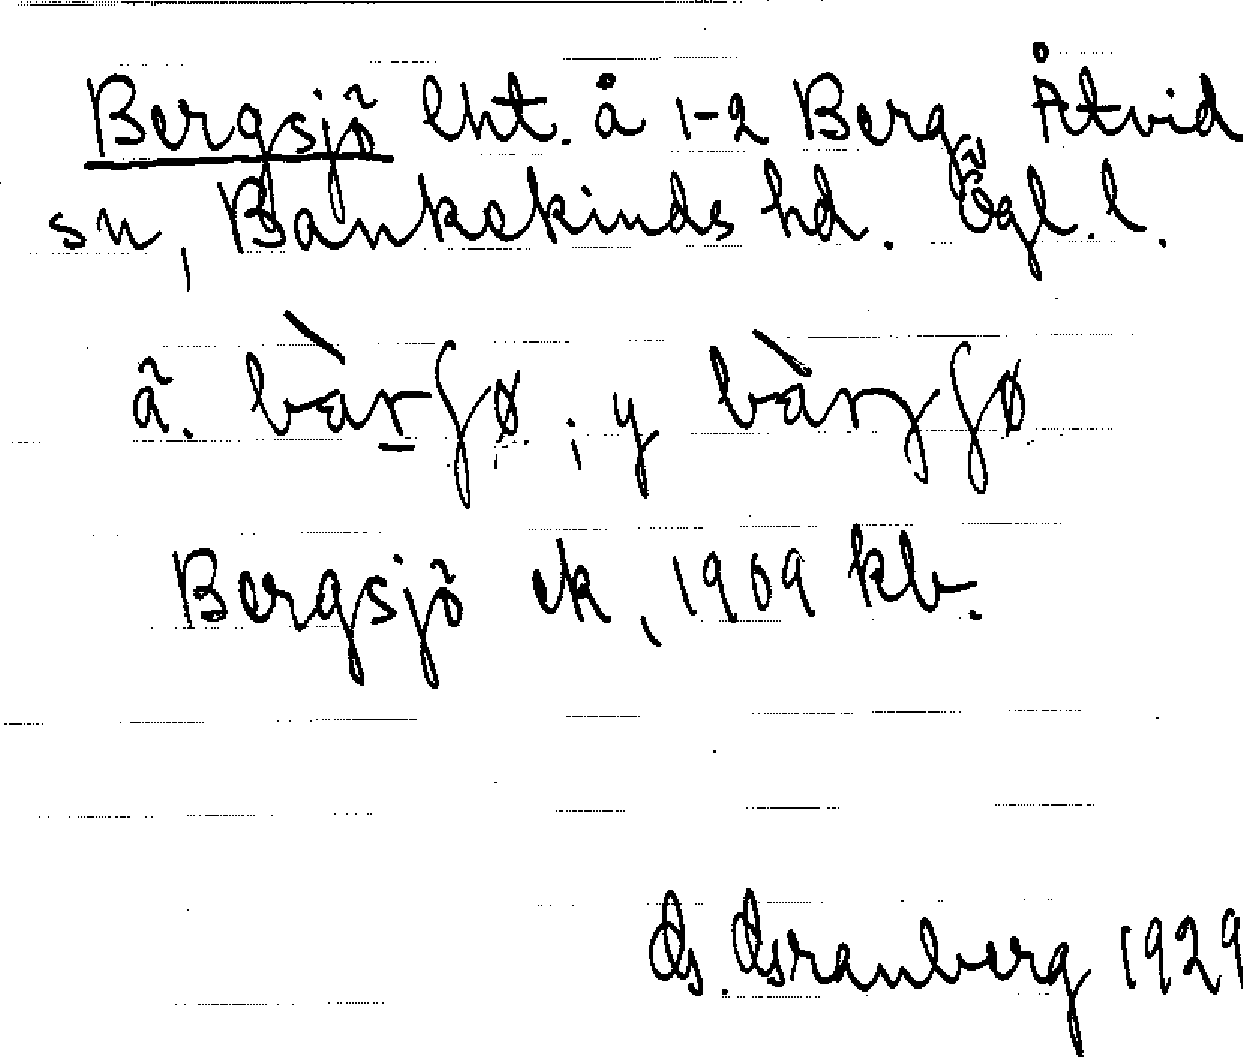 Bergsjö lht. å 1-2 Berg, Åtvid
sn, Bankekinds hd. Ögl. l.
ä. bàrʃø, y bàrʒʃø
Bergsjö ek, 1909 kb.
G. Granberg 1929